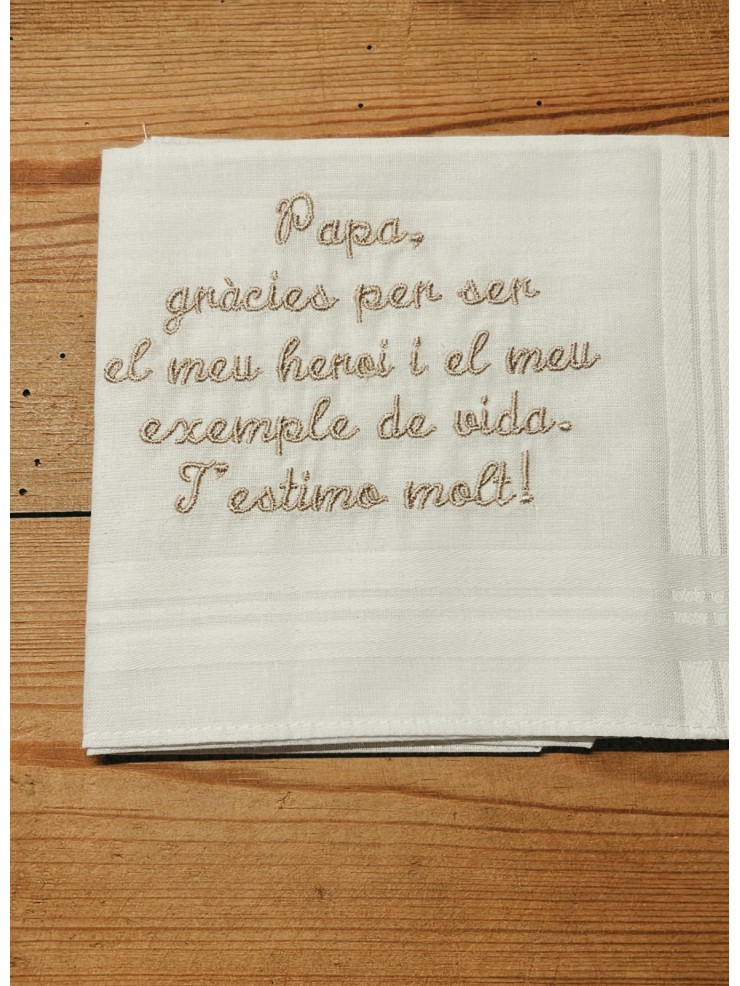 Papa,
gràcies per ser
el meu heroi i el meu
exemple de vida.
T'estimo molt!